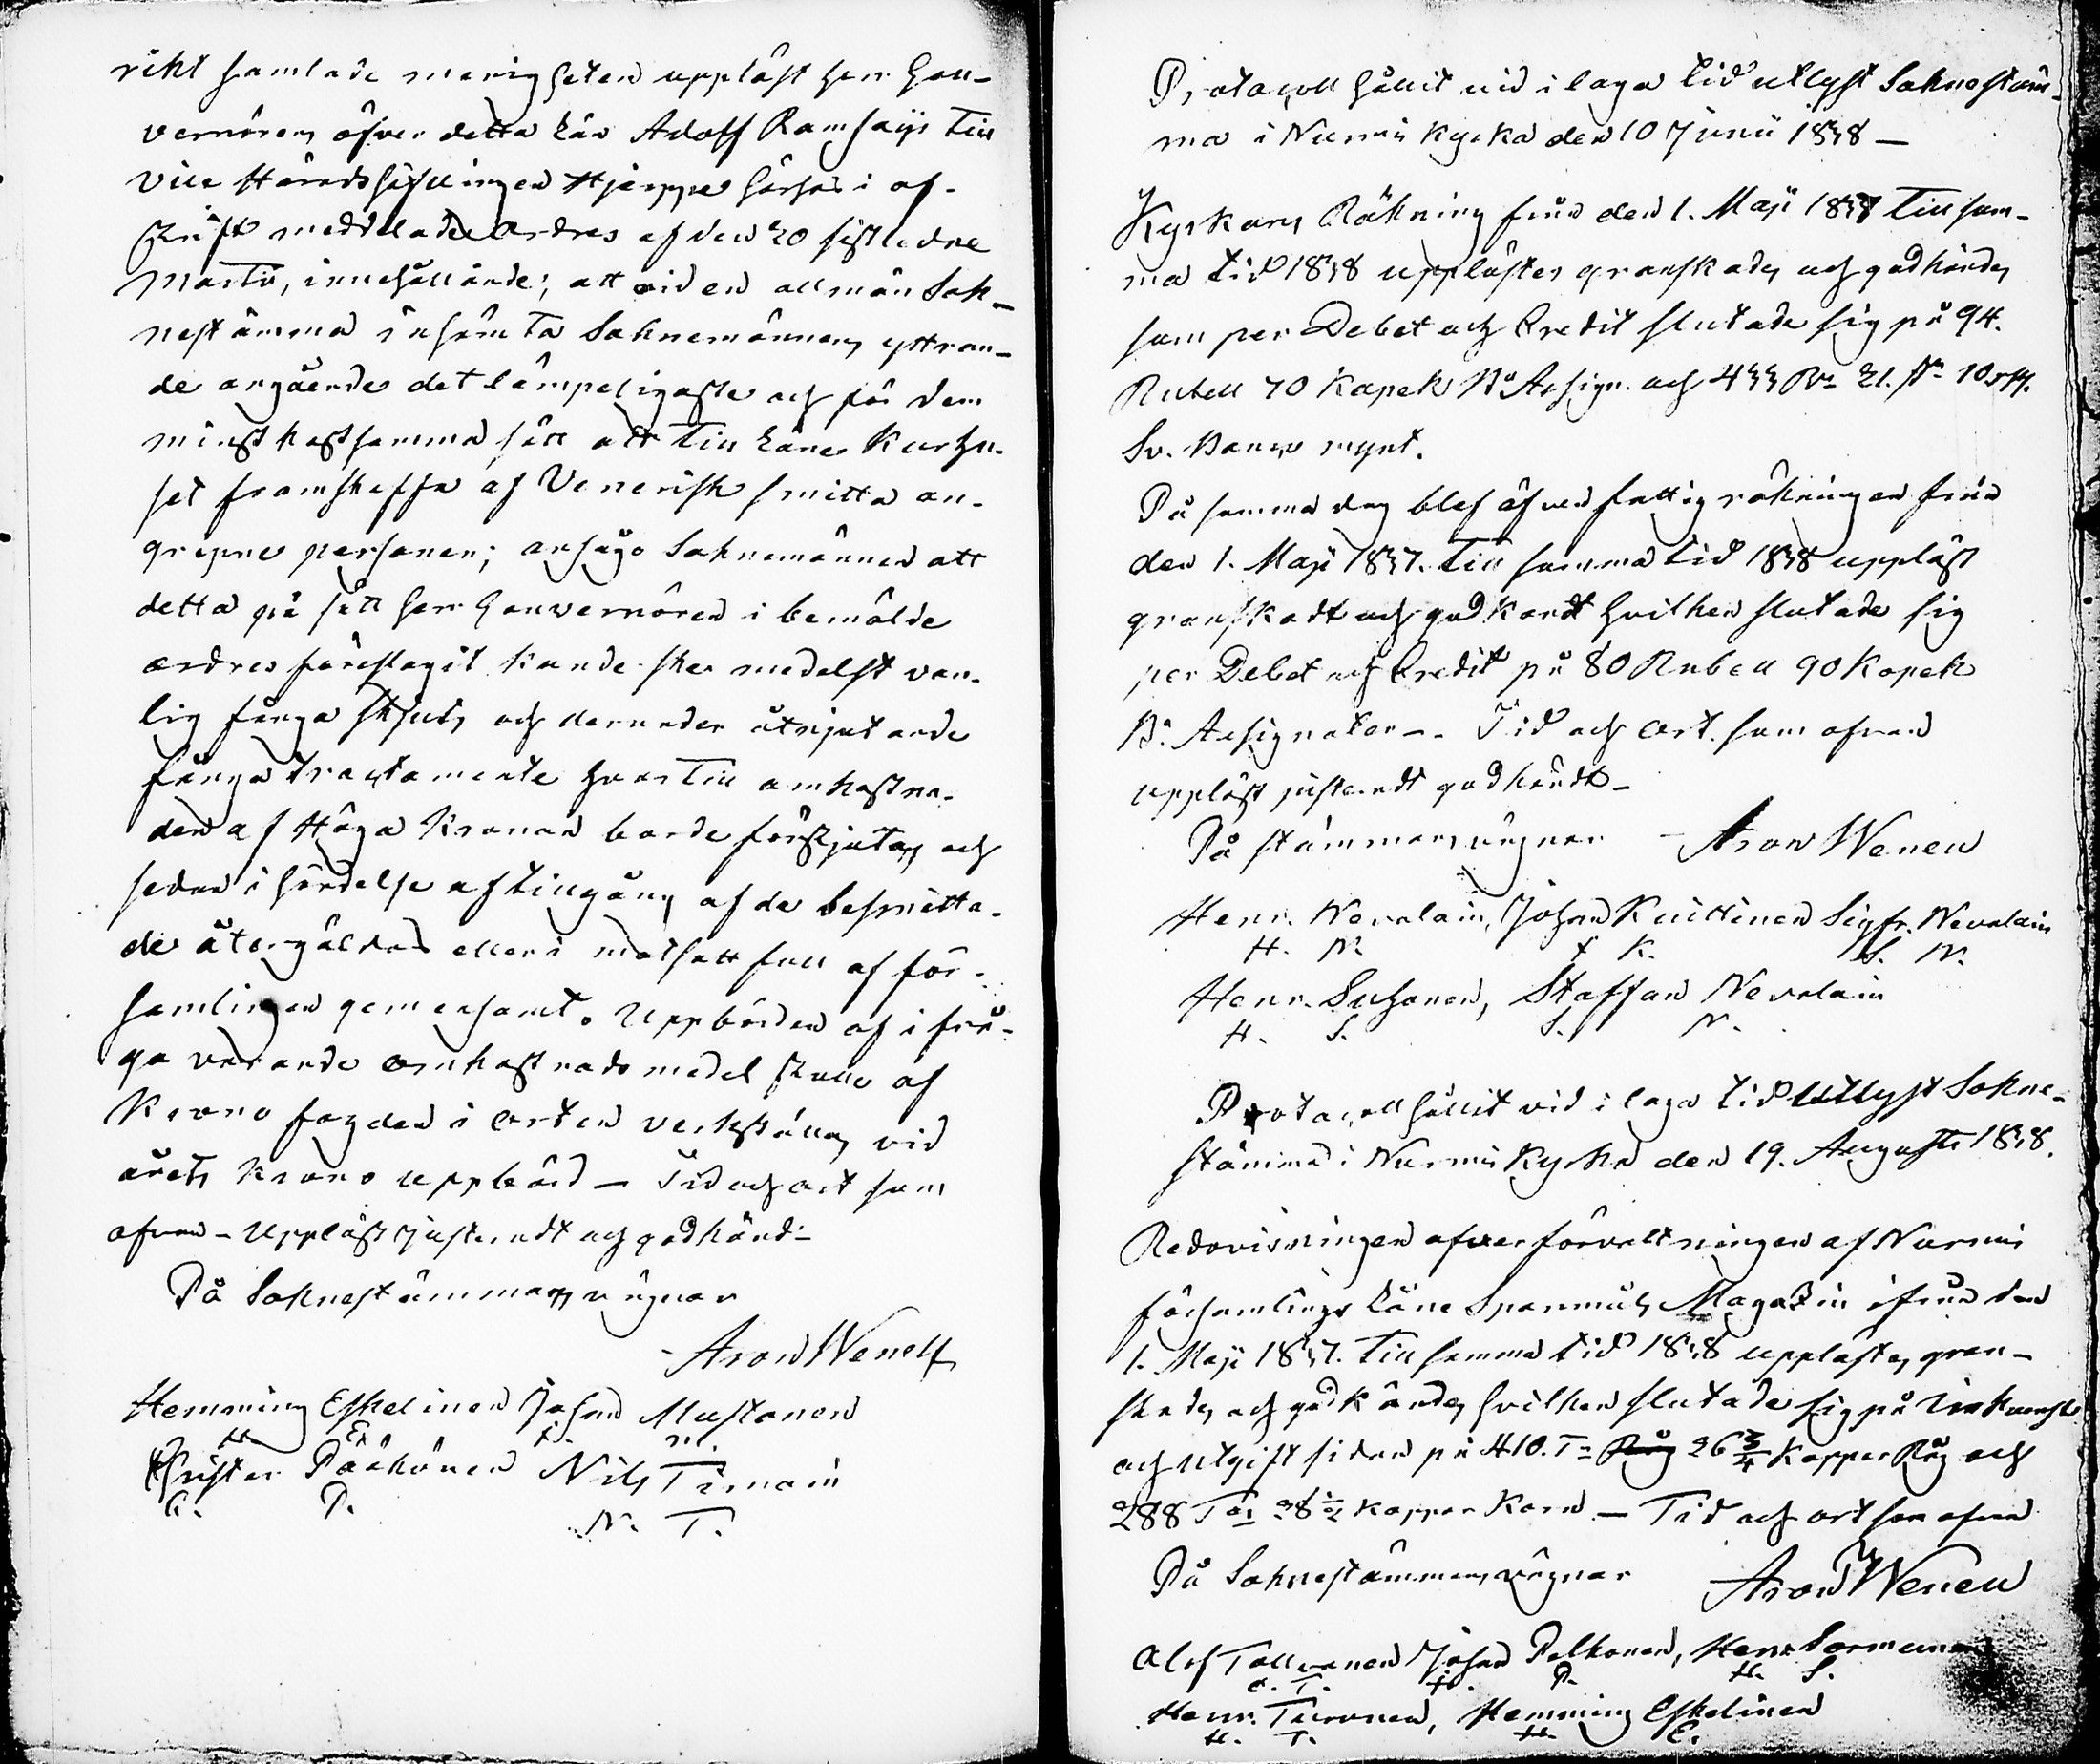 rikt samlade menigheten uppläst herr Gou-
vernören öfver detta Län Adolf Ramsays till
vice Häradshöfdingen Hjerppe härhos i af-
skrift meddelade ordres af den 20 sistledne
Martii, innehållande; att vid en allmän Sok-
nestämma inhämta Soknemännens yttran-
de angående det lämpeligaste och för dem
minst kostsamma sätt att till Läne Kurhu-
set framskaffa af Venerisk smitta an-
gripne personer; ansågo Soknemännen att
detta på sätt herr Gouvernören i bemälde
ordres föreslagit kunde ske medelst van-
lig fånga skjuts och derunder åtnjutande
fånga tractamente hvartill omkostna-
den af Höga Kronan borde förskjutas och
sedan i händelse af tillgång af de besmitta-
de återgäldas eller i motsatt fall af för-
samlingen gemensamt. Uppbörden af i frå-
ga varande omkostnads medel skulle af
Krono fogden i orten verkställas vid
årets Krono uppbörd – Tid och ort som
ofvan – Uppläst justeradt och godkändt
På Soknestämmans vägnar
Aron Wenell
Hemming Eskelinen Johan Mustonen
H. E. J. M.
Christer Päähönen Nils Timoin
C. P.
N. T.
Protocoll hållit vid i laga tid utlyst Soknestäm-
ma i Nurmis Kyrka den 10 Junii 1838 –
Kyrkans Räkning från den 1. Maji 1837 till sam-
ma tid 1838 upplästes granskades och godkändes
som per Debet och Credit slutade sig på 94.
Rubell 70 Kopek Bo Assign. och 433 Rr 21. sk 10 rst.
Sv. Banco mynt.
På samma dag blef äfven fattig räkningen från
den 1. Maji 1837. till samma tid 1838 uppläst
granskadt och godkandt hvilken slutade sig
per Debet och Credit på 80 Rubell 90 Kopek
Bo Assignater –. Tid och ort som ofvan
uppläst justeradt godkändt –
På stämmans vägnar Aron Wenell
Henr. Nevalain, Johan Kuittinen Sigfr. Nevalain
H. N. J. K. S. N.
Henr. Suhonen, Staffan Nevalain
H. S. S. N.
Protocoll hållit vid i laga tid utlyst Sokne-
stämma i Nurmis Kyrka den 19. Augusti 1838.
Redovisningen öfver förvaltningen af Nurmis
församlings Låne Spanmåls Magazin ifrån den
1. Maji 1837. till samma tid 1838 upplästes gran-
skades och godkändes hvilken slutade sig på inkomst
och utgift sidan på 410. Tr Råg 26 3/4 Kappar Råg och
288 Tr 28 1/2 Kappar Korn – Tid och ort som ofvan
På Soknestämmans vägnar Aron Wenell
Olof Tolvanen Johan Pelkonen, Henr. Sormunen
O. T. J. P. H. S.
Henr. Turunen, Hemming Eskelinen
H. T. H. E.